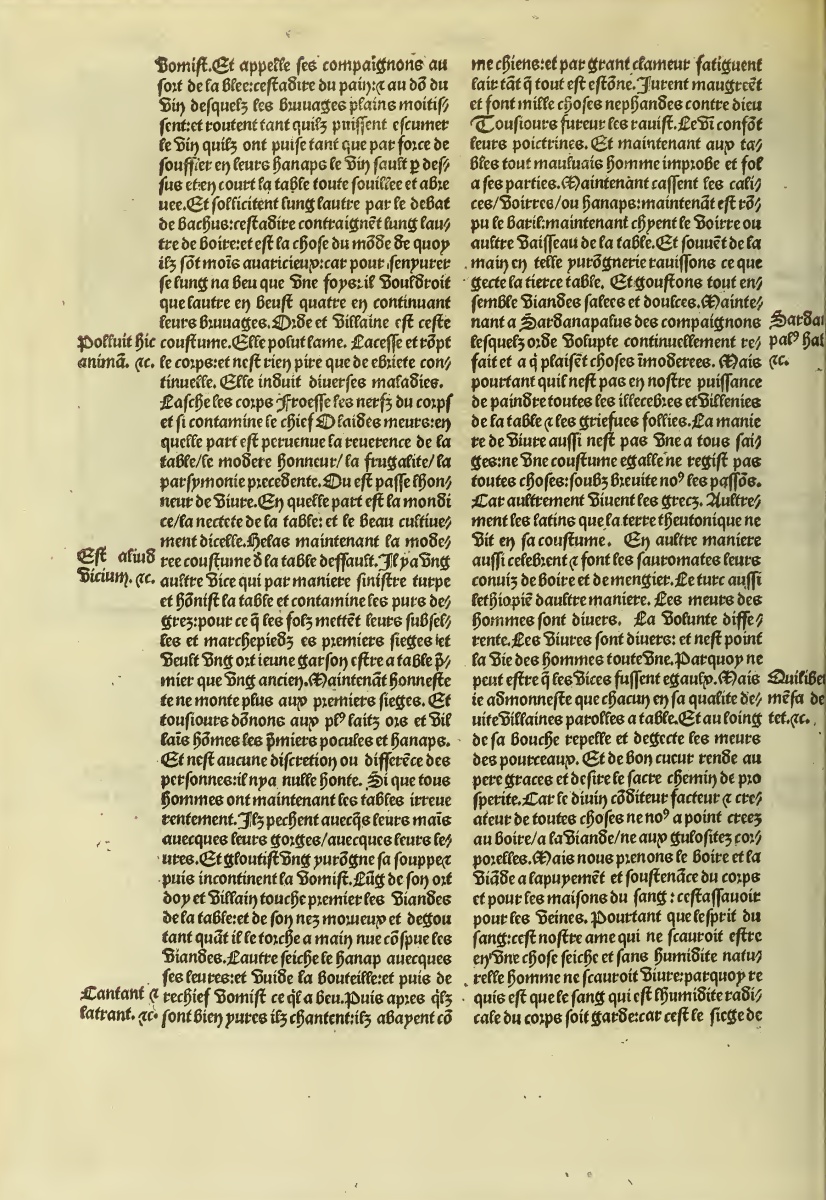 vomist.Et appelle ses compaignons au
fort de la blee:cestadire du pain:⁊ au dõ du
vin desquelz les buuuages plains moitis//
sent:et routent tant quilz puissent escumer
le vin quilz ont puise tant que par force de
souffler en leurs hanaps le vin sault p des//
sus et en court la table toute souillee et abre
uee.Et sollicitent lung lautre par le debat
de bachus:cestadire contraignẽt lung lau//
tre de boire:et est la chose du mõde de quoy
ilz sõt mois auaricieup:car pour senyurer
se lung na beu que vne foys:il vouldroit
que lautre en beust quatre en continuant
leurs buuuages.Orde et villaine est ceste
coustume.Elle polut lame. Lacesse et rõpt
le corps:et nest rien pire que de ebriete con//
tinuelle. Elle induit diuerses maladies.
Lasche les corps Froesse les nerfz du corps
et si contamine le chief O laides meurs:en
quelle part est peruenue la reuerence de la
table/le modere honneur/la frugalite/la
parsymonie precedente. Ou est passe lhon//
neur de viure. En quelle part est la mondi
ce/la nectete de la table: et le beau cultiue//
ment dicelle.Helas maintenant la mode//
ree coustume d̃ la table deffault.Il pa vng
aultre vice qui par maniere sinistre turpe
et hõnist la table et contamine les purs de//
grez:pour ce q̃ les folz mettẽt leurs subsel//
les et marchepiedz es premiers sieges ⁊et
veult vng ort ieune garson estre a table p̃//
mier que vng ancien.Maintenãt honneste
te ne monte plus aup premiers sieges. Et
tousiours dõnons aup plꝰ faitz ors et vil
lais hõmes les p̃miers pocules et hanaps.
Et nest aucune discretion ou differẽce des
personnes:il npa nulle honte. Si que tous
hommes ont maintenant les tables irreue
rentement. Ilz pechent auecq̃s leurs mais
auecques leurs gorges/auecques leurs le//
ures.Et gloutist vng yurõgne sa souppe⁊
puis incontinent la vomist.Lũg de son ort
doy et villain touche premier les viandes
de la table:et de son nez morueup et degou
tant quãt il le torche a main nue cõspue les
viandes.Lautre seiche le hanap auecques
ses leures:et vuide la bouteille:et puis de
rechief vomist ce ql̃ a beu.Puis apres q̃lz
sont bien yures ilz chantent:ilz abayent cõ
Polluit hic
animã. ⁊c.
Est aliud
vicium. ⁊c.
Cantant ⁊
latrant. ⁊c.
me chiens:et par grant clameur fatiguent
lair tãt q̃ tout est estõne.Iurent maugreẽt
et font mille choses nephandes contre dieu
Tousiours fureur les rauist.Le vi confõt
leurs poictrines. Et maintenant aup ta//
bles tout mauluais homme improbe et fol
a ses parties.Maintenant cassent les cali//
ces/voirres/ou hanaps:maintenãt est rõ//
pu le baril:maintenant chpent le voirre ou
aultre vaisseau de la table.Et souuẽt de la
main en telle purõgnerie rauissons ce que
gecte la tierce table. Et goustons tout en//
semble viandes salees et doulces.Mainte//
nant a Sardanapalus des compaignons
lesquelz orde volupte continuellement re//
fait et a q̃ plaisẽt choses imoderees. Mais
pourtant quil nest pas en nostre puissance
de paindre toutes les illecebres et villenies
de la table ⁊ les griefues follies.La manie
re de viure aussi nest pas vne a tous sai//
ges:ne vne coustume egalle ne regist pas
toutes choses:soubz breuite noꝰ les passõs.
Car aultrement viuent les grecz. Aultre//
ment les latins que la terre theutonique ne
vit en sa coustume. En aultre maniere
aussi celebrent ⁊ font les sauromates leurs
conuiz de boire et de mengier.Le turc aussi
lethiopiẽ daultre maniere. Les meurs des
hommes sont diuers. La volunte diffe//
rente.Les viures sont diuers: et nest point
la vie des hommes toute vne.Parquop ne
peut estre q̃ les vices fussent egaulp.Mais
ie admonneste que chacun en sa qualite de//
uite villaines parolles a table.Et au loing
de sa bouche repelle et degecte les meurs
des pourceaup. Et de bon cueur rende au
pere graces et desire le sacre chemin de pro
sperite.Car le diuin cõditeur facteur ⁊ cre//
ateur de toutes choses ne noꝰ a point creez
au boire/a la viande/ne aup gulositez cor//
porelles.Mais nous prenons le boire et la
viãde a lapuyemẽt et soustenãce du corps
et pour les maisons du sang : cestassauoir
pour les veines. Pourtant que lesprit du
sang:cest nostre ame qui ne scauroit estre
en vne chose seiche et sans humidite natu//
relle homme ne scauroit viure:parquop re
quis est que le sang qui est lhumidite radi//
cale du corps soit garde:car cest le siege de
Sarda
palꝰ ha
⁊c.
Quilibe
mẽsa de
tet.⁊c.